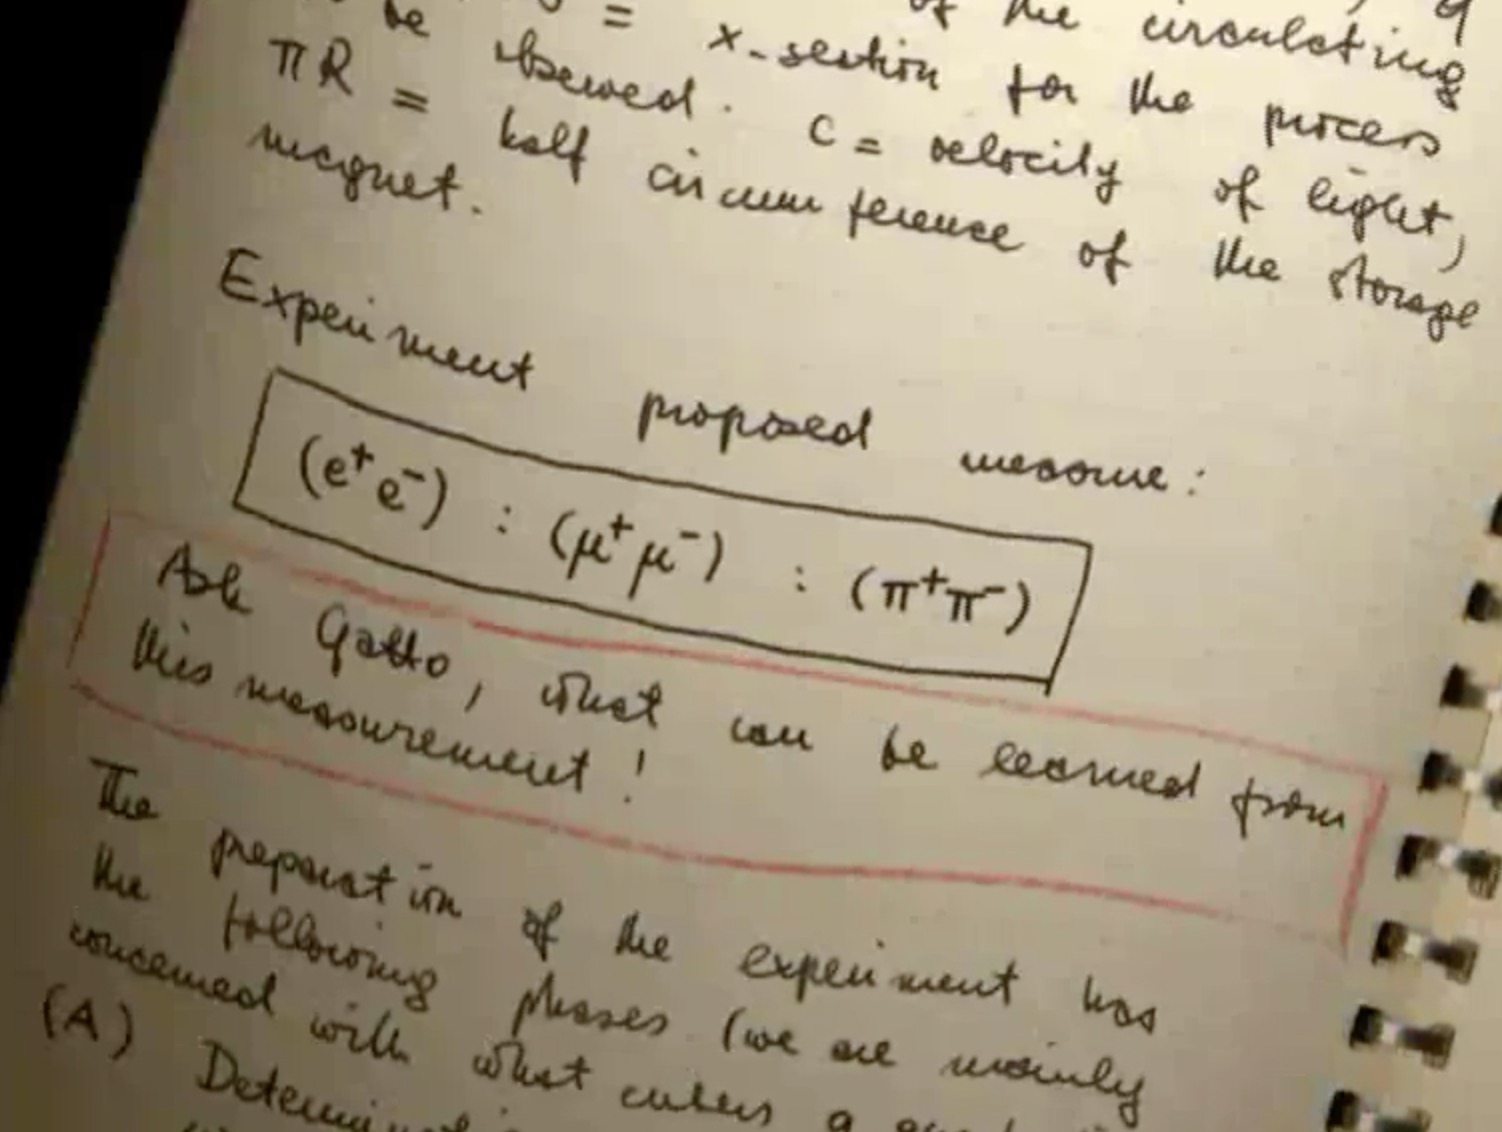 of the circulating
= x-section for the process
be observed. C = velocity of light,
πR = half circumference of the storage
magnet.
Experiment proposed measure:
(e⁺e⁻) : (μ⁺μ⁻) : (π⁺π⁻)
Ask Gatto, what can be learned from
this measurement!
The preparation of the experiment has
the following phases (we are mainly
concerned with what enters a
(A)